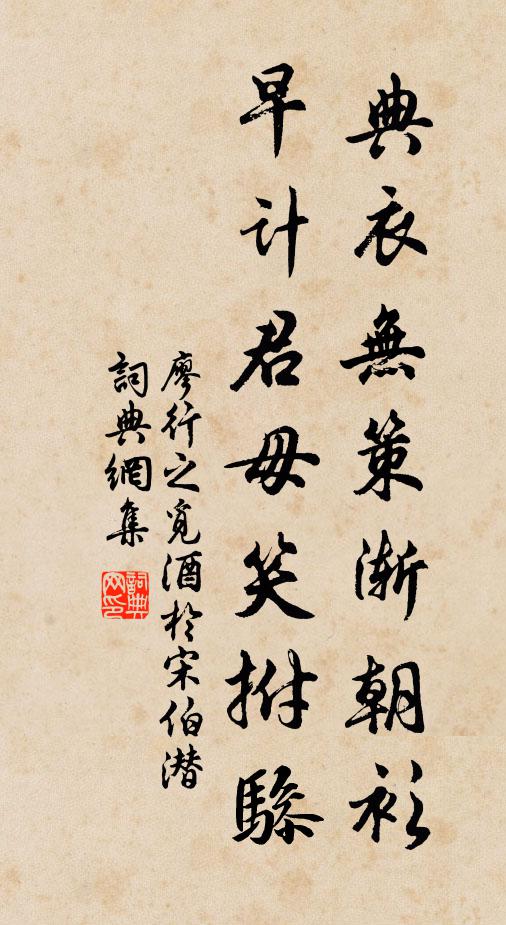 典衣無策漸朝衫
早计君毋笑拊驂
廖行之覓酒於宋伯潜
詞典網集
詞典网印